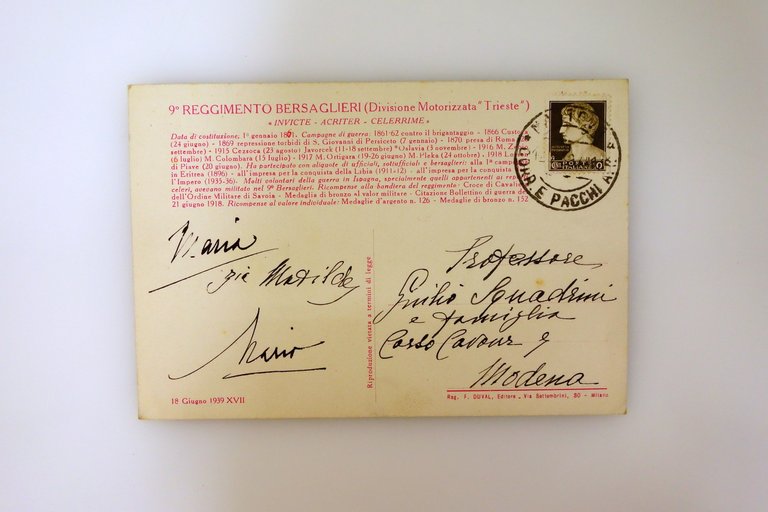 9º REGGIMENTO BERSAGLIERI (Divisione Motorizzata "Trieste")
• INVICTE - ACRITER - CELERRIME •
Data di costituzione, 1º gennaio 1871. Campagne di guerra. 1861-62 contro il brigantaggio - 1866 Custoza
(24 giugno) - 1869 repressione torbidi di S. Giovanni di Persiceto (7 gennaio) - 1870 presa di Roma
settembre) - 1915 Cezsoca (23 agosto) Javorcek (11-18 settembre) "Oslavia (5 novembre) - 1916 M. 
(6 luglio) M. Colombara (15 luglio) - 1917 M. Ortigara (19-26 giugno) M. Fleka (24 ottobre) - 1918
di Piave (20 giugno). Ha partecipato con aliquote di ufficiali, sottufficiali e bersaglieri: alla 1ª
in Eritrea (1896) - all'impresa per la conquista della Libia (1911-12) - all'impresa per la conquista
l'Impero (1935-36). Molti volontari della guerra in Ispagna, specialmente quelli appartenenti ai
celeri, avevano militato nel 9º Bersaglieri. Ricompense alla bandiera del reggimento: Croce di
dell'Ordine Militare di Savoia - Medaglia di bronzo al valor militare - Citazione Bollettino di guerra del
21 giugno 1918. Ricompense al valore individuale: Medaglie d'argento n. 126 - Medaglie di bronzo n. 152
CORR. E PACCHI
Maria
zia Matilde
Mario
Professore
Giulio Squadrini
e famiglia
Corso Cavour 9
Modena
Riproduzione vietata a termini di legge
18 Giugno 1939 XVII
Rag. F. DUVAL, Editore - Via Settembrini, 50 - Milano